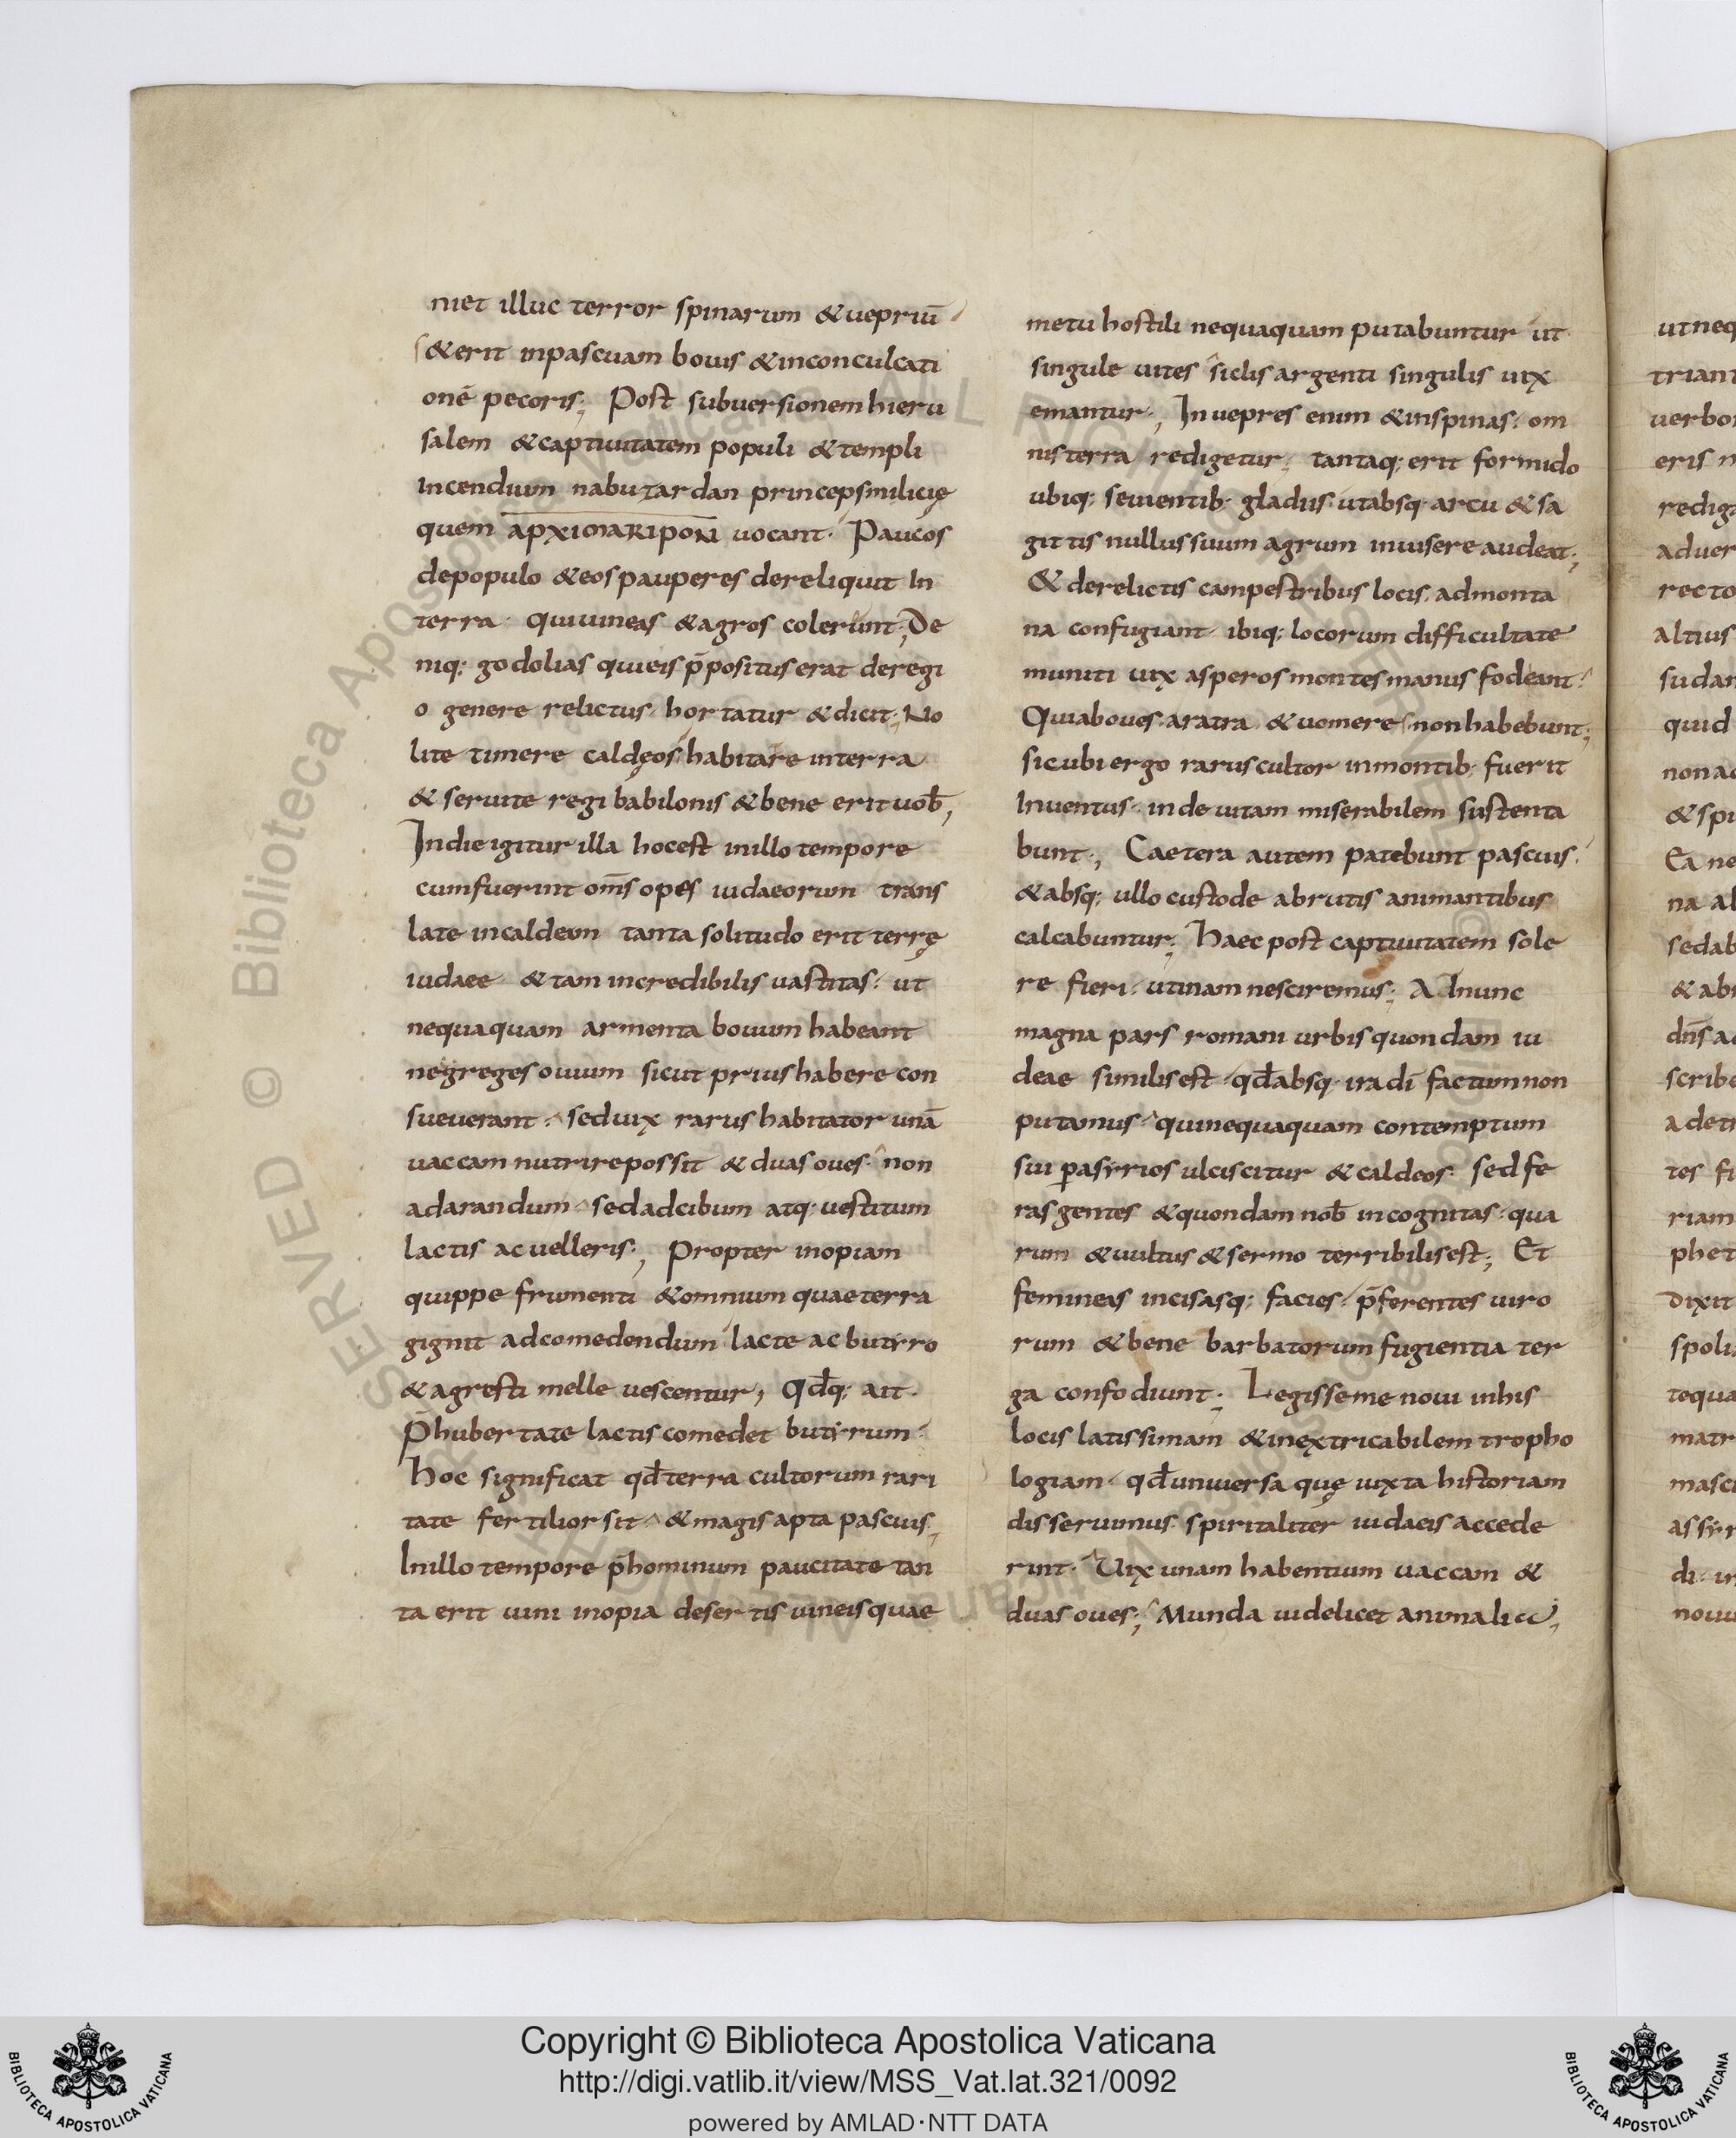 niet illuc terror spinarum & uepriū
& erit inpascuam bouis & inconculcati
onē pecoris; Post subuersionem hieru
salem & captiuitatem populi & templi
Incendium nabuzardan princeps milicię
quem apximaripon uocant. Paucos
depopulo & eos pauperes dereliquit In
terra. qui uineas & agros colerunt; De
niq; godolias qui eis p̄positus erat deregi
o genere relictus. hortatur & dicit; No
lite timere caldęos habitare interra
& seruite regi babilonis & bene erit uob̄;
In die igitur illa hoc est in illo tempore
cum fuerint om̄s opes iudaeorum trans
late in caldeam tanta solitudo erit terrę
iudaee & tam incredibilis uastitas. ut
nequaquam armenta bouum habeant
ne greges ouium sicut prius habere con
sueuerant. sed uix rarus habitator unā
uaccam nutrire possit & duas oues. non
ad arandum. sed ad cibum atq; uestitum
lactis ac uelleris; Propter inopiam
quippe frumenti & omnium quae terra
gignit ad comedendum lacte ac butyro
& agresti melle uescentur; Qd̄q; ait.
P̄h ubertate lactis comedet butyrum.
Hoc significat qd̄ terra cultorum rari
tate fertilior sit. & magis apta pascuis;
In illo tempore p̄ hominum paucitate tan
ta erit uini inopia desertis uineis quae
metu hostili nequaquam putabuntur ut
singule uites siclis argenti singulis uix
emantur; In uepres enim & in spinas. om
nis terra redigetur; tantaq; erit formido
ubiq; seuientib. gladiis. ut absq. arcu & sa
gittis nullus suum agrum inuisere audeat;
& derelictis campestribus locis. ad monta
na confugiant. ibiq; locorum difficultate
muniti uix asperos montes manus fodeant.
Quia boues. aratra. & uomere non habebunt;
sicubi ergo rarus cultor in montib; fuerit
Inuentus. inde uitam miserabilem sustenta
bunt; Caetera autem patebunt pascuis.
& absq; ullo custode abrutis animantibus
calcabuntur; Haec post captiuitatem sole
re fieri. utinam nesciremus; Ad nunc
magna pars romani urbis quondam iu
deae similis est. qd̄ absq. ira dī factum non
putamus. qui nequaquam contemptum
sui p asyrios ulciscitur & caldeos. sed fe
ras gentes & quondam nob̄ incognitas. qua
rum & uultus & sermo terribilis est; Et
femineas incisasq; facies. p̄ferentes uiro
rum & bene barbatorum fugientia ter
ga confodiunt; Legisse me noui in his
locis latissimam & inextricabilem tropho
logiam. qd̄ uniuersa quę iuxta historiam
disseruimus. spiritaliter iudaeis accede
rint. Uix unam habentium uaccam &
duas oues; Munda uidelicet animalia;
ut neq
triant
uerbo
eris n
rediga
aduer
recto
altius
sudan
quid
non ac
& spi
Ea ne
na al
sedab
& abs
dn̄s a
scribe
a detr
tes fi
riam
phet
dixit
spolia
tequa
matr
masc
assyr
di. in
nouu
Copyright © Biblioteca Apostolica Vaticana
http://digi.vatlib.it/view/MSS_Vat.lat.321/0092
powered by AMLAD·NTT DATA
BIBLIOTECA APOSTOLICA VATICANA
BIBLIOTECA APOSTOLICA VATICANA